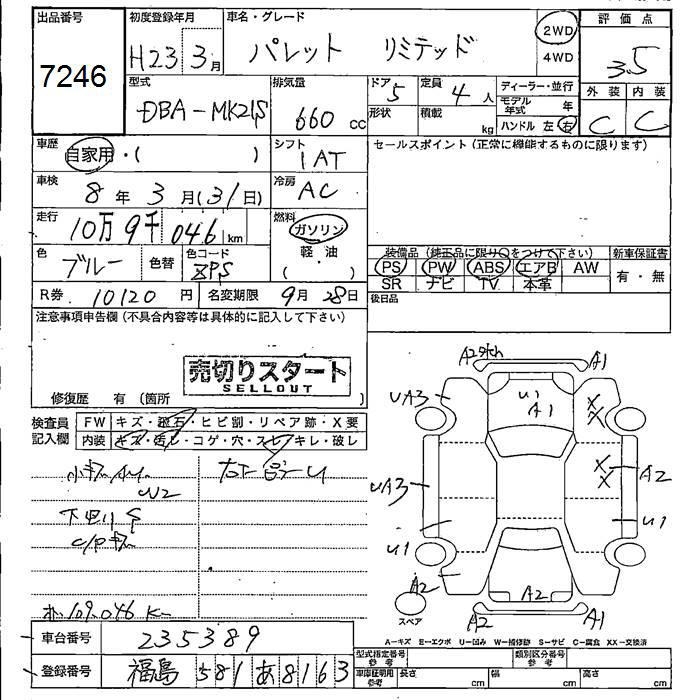 出品番号 初度登録年月 車名・グレード 評価点
7246 H23年3月 パレット リミテッド 2WD 4WD 3.5
型式 排気量 ドア 5 定員 4人 ディーラー・並行 外装 内装
DBA-MK21S 660cc 形状 積載 kg モデル年式 年 ハンドル 左 右 C C
車歴 自家用・( ) シフト 1AT セールスポイント(正常に機能するものに限ります)
車検 8年3月(31日) 冷房 AC
走行 10万9千046km 燃料 ガソリン 軽・油 ( )
色 ブルー 色替 色コード ZPS 装備品(純正品に限り○をつけて下さい) 新車保証書
PS PW ABS エアB AW 有・無
SR ナビ TV 本革
R券 10120円 名変期限 9月28日 後日品
注意事項申告欄(不具合内容等は具体的に記入して下さい)
売切りスタート
SELLOUT
修復歴 有(箇所 )
検査員記入欄 FW キズ・飛石・ヒビ割・リペア跡・X要
内装 キズ・汚レ・コゲ・穴・スレ・キレ・破レ
W2
下回りS
109.046K
A2 A1
UA3 U1 A1 X X
UA3 X X A2
U1 U1
A2 A2
スペア A2 A1
A-キズ E-エクボ U-凹み W-補修跡 S-サビ C-腐食 XX-交換済
車台番号 235389 型式指定番号 参考 類別区分番号 参考
登録番号 福島 581 あ 8163 車庫証明用 参考 長さ cm 幅 cm 高さ cm